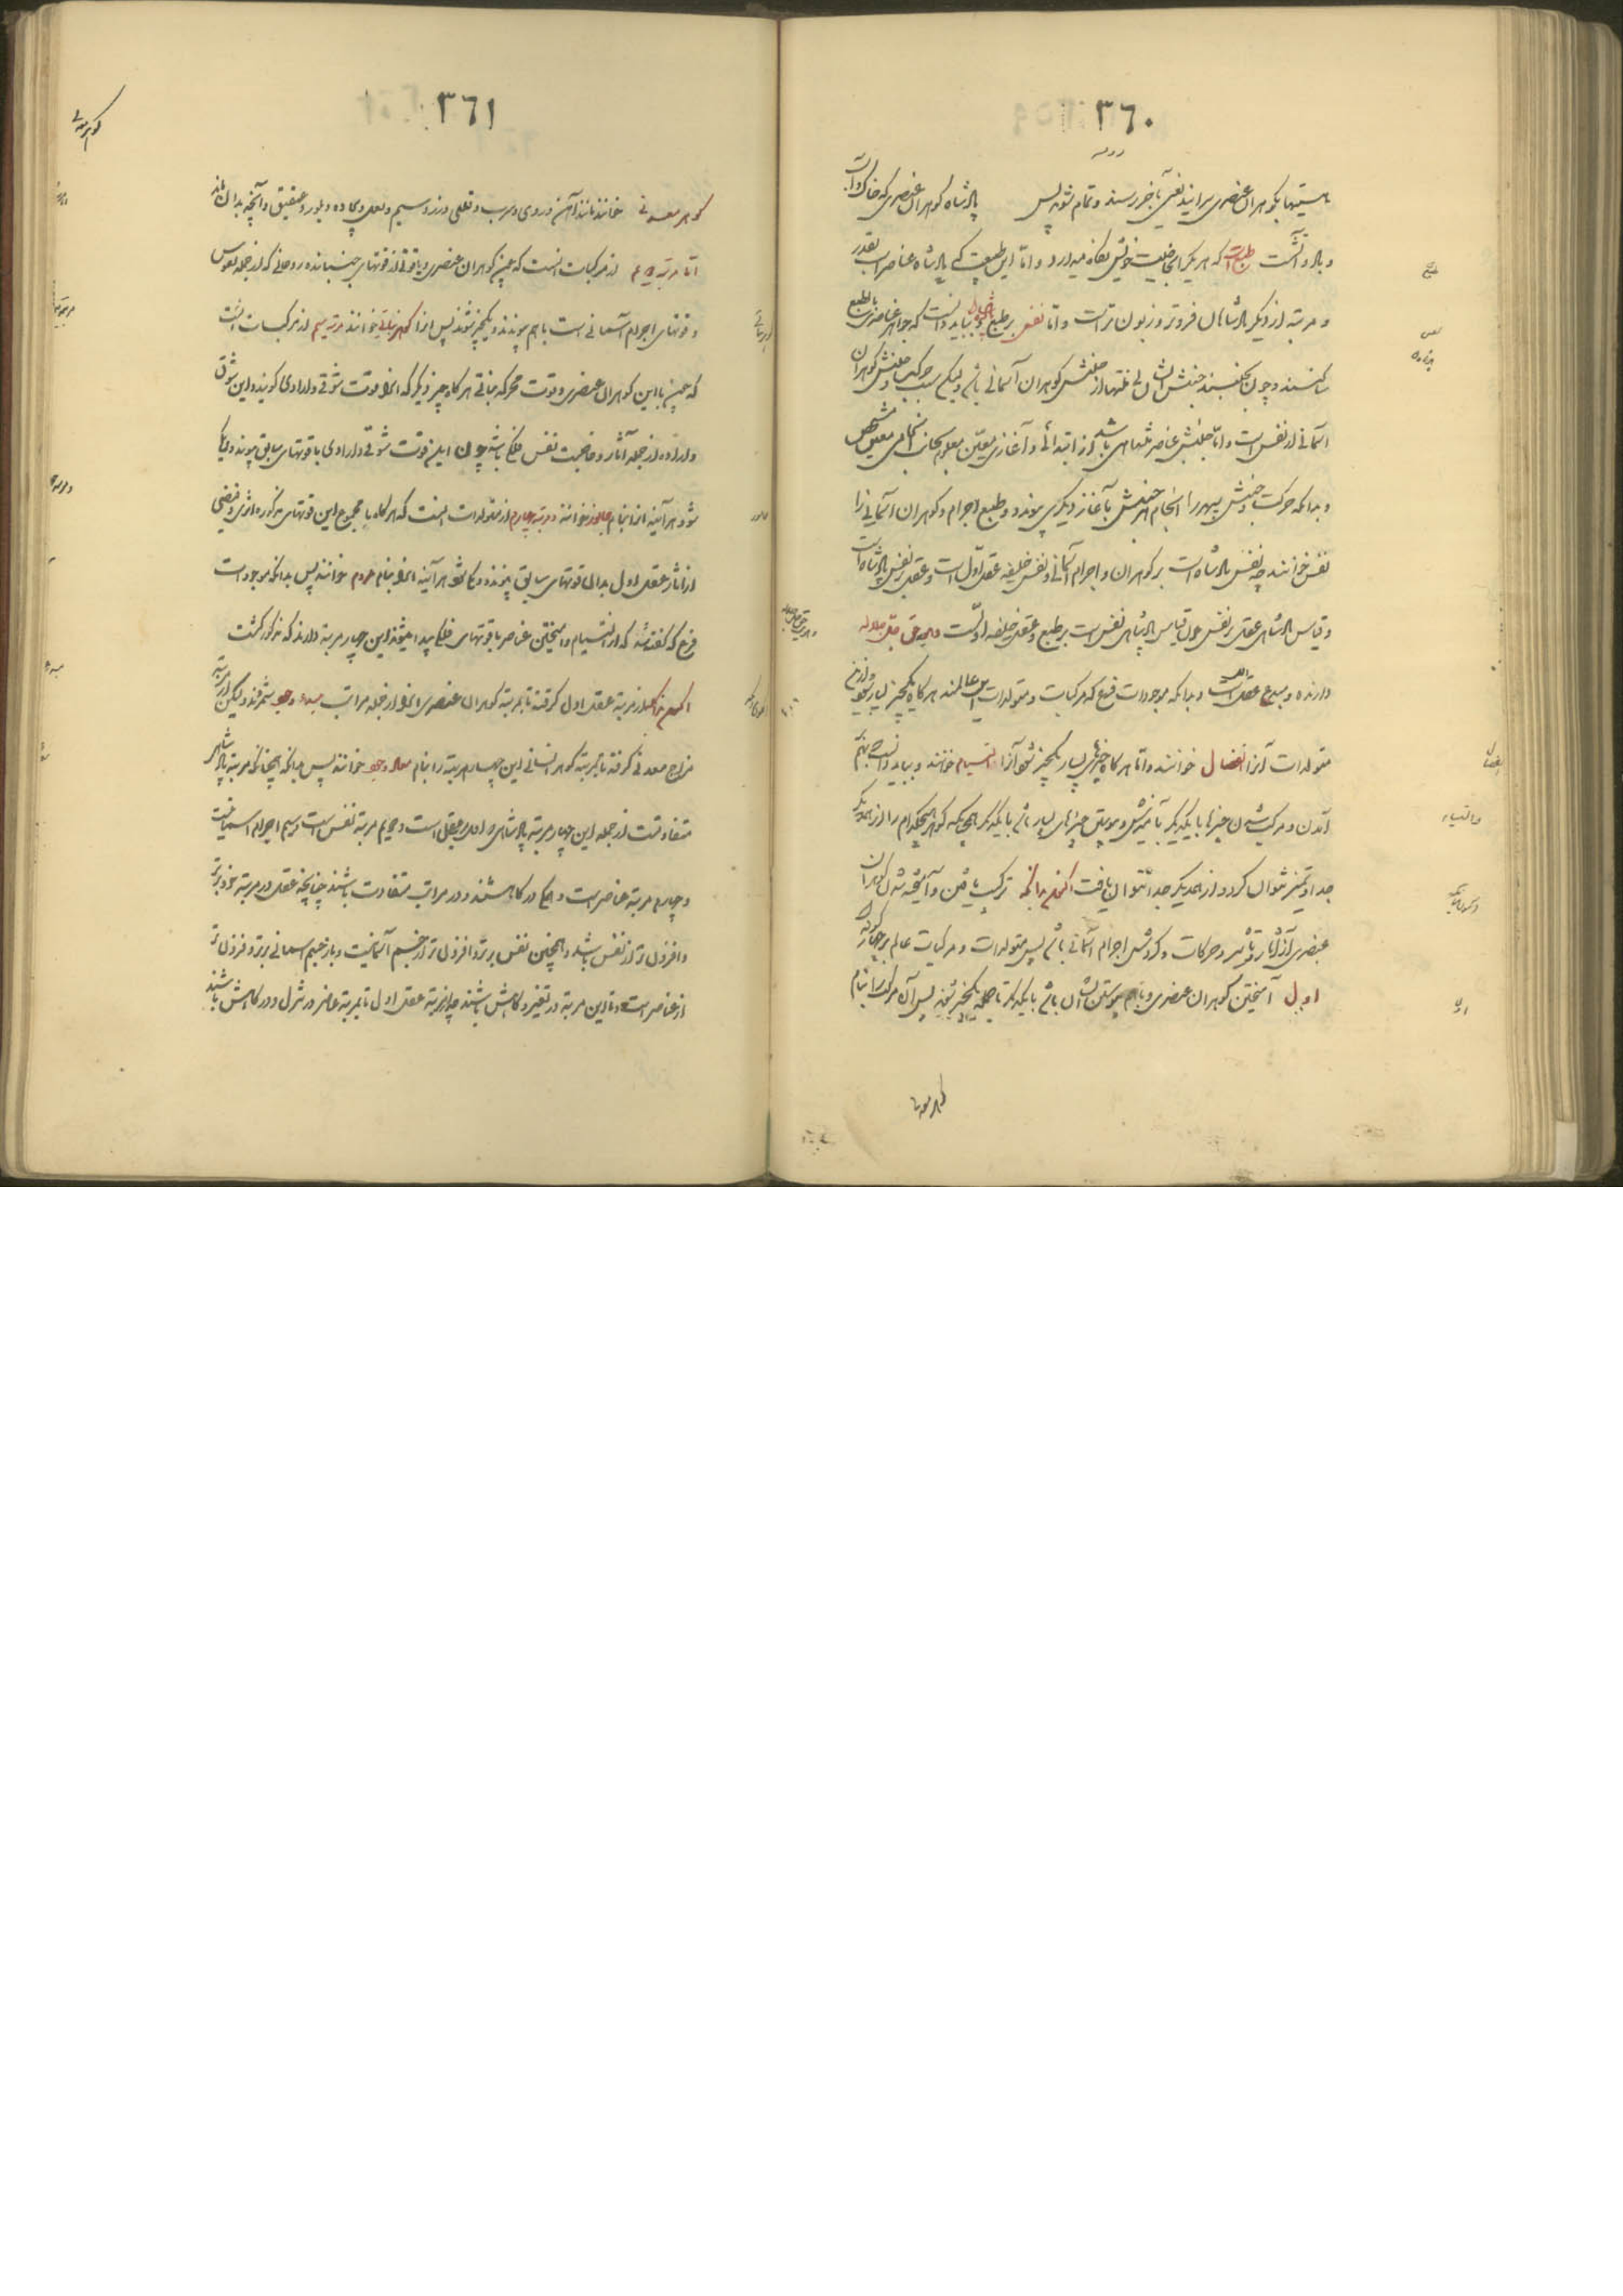 ٣٦٠
پادشاه گوهران عنصری که خاک و آب
و باد و آتش است طبع است که هر یکی را بخاصیت خویش نگاه میدارد و اما این طبیعت که پادشاه عناصر است بقدر
و مرتبه از دیگر پادشاهان فروتر و زبون تر است و اما نفس بر طبع پادشاه است و بباید دانست که جواهر عناصر بالطبع
ساکنند و چون بجنبند جنبش ایشان از جنبش گوهران آسمانی باشد و لیکن سبب حرکت و جنبش گوهران
آسمانی از نفس است و اما جنبش عناصر متناهی باشد از ابتدائی و آغازی معین معلوم بجانب انجامی معین مشخص
و بدانکه حرکت و جنبش سپهر را انجام هر جنبش بآغاز دیگری پیوندد و طبع اجرام و گوهران آسمانی را
نفس خوانند چه نفس پادشاه است بر گوهران و اجرام آسمانی و نفس خلیفه عقل اول است و عقل بر نفس پادشاه است
و قیاس پادشاهی عقل بر نفس چون قیاس پادشاهی نفس است بر طبع و عقل خلیفه اوست و او حق جل جلاله
دارنده و مبدع عقل است و بدانکه موجودات فرع که مرکبات و متولدات این عالمند هرگاه یکچیز بسیار شود
متولدات آنرا انفصال خوانند و اما هرگاه چیزهای بسیار یکچیز شود آنرا التیام خوانند و بباید دانست بهم
آمدن و مرکب شدن چیزها با یکدیگر بآمیزش و پیوستن چیزهای بسیار باشد با یکدیگر همچنانکه گوهر هیچکدام را از همدیگر
جدا و تمیز نتوان کرد و از همدیگر جدا نتوان یافت اکنون بدانکه ترکیب یافتن و آمیخته شدن گوهران
عنصری از آثار و تأثیر و حرکات و گردش اجرام آسمانی باشد پس متولدات و مرکبات عالم بر چهار گونه
اول آمیختن گوهران عنصری و باهم پیوستن ایشان باشد با یکدیگر تا جمله یکچیز شوند پس آن مرکب را بنام
گوهر معدنی
٣٦١
گوهر معدنی خوانند مانند آهن و روی و سرب و قلعی و زر و سیم و لعل و بیجاده و بلور و عقیق و آنچه بدان ماند
اما مرتبه دویم از مرکبات آنست که چون گوهران عنصری با قوتی از قوتهای جنباننده روحانی که از جمله نفوس
و قوتهای اجرام آسمانی است باهم پیوندند و یکچیز شوند پس آنرا گوهر نباتی خوانند مرتبه سیم از مرکبات آنست
که چون با این گوهران عنصری و قوت محرکه نباتی هرگاه چیز دیگر که آنرا قوت شوقی و ارادی گویند و این شوق
و اراده از جمله آثار و خاصیت نفس فلکی باشد چون این قوت شوقی و ارادی با قوتهای سابق پیوندد و یکتا
شود هر آینه آنرا بنام جانور خوانند و مرتبه چهارم از متولدات آنست که هرگاه با مجموع این قوتهای مذکوره اثری و فیضی
از آثار عقل اول بدان قوتهای سابق پیوندد و یکتا شود هر آینه آنرا بنام مردم خوانند پس بدانکه موجودات
فرع که گفته شد که از التیام و آمیختن عناصر با قوتهای فلکی پیدا میشوند این چهار مرتبه دارند که مذکور گشت
اکنون بدانکه از مرتبه عقل اول گرفته تا بمرتبه گوهران عنصری آنرا از جمله مراتب مبدء وجود شمرند و لیکن از مرتبه
مزاج معدنی گرفته تا بمرتبه گوهر انسانی این چهار مرتبه را بنام معاد وجود خوانند پس بدانکه همچنانکه مرتبه پادشاهی
متفاوتست از جمله این چهار مرتبه پادشاهی اول عقل است و دویم مرتبه نفس است و سیم اجرام آسمانیست
و چهارم مرتبه عناصر است و همگی در کاهشند و در مراتب متفاوت باشند چنانچه عقل در مرتبه خود برتر
و افزون تر از نفس باشد و همچنین نفس برتر و افزون تر از جسم آسمانیست و باز جسم آسمانی برتر و فزون تر
از عناصر است و تا این مرتبه در تغیر و کاهش باشند چه از مرتبه عقل اول تا بمرتبه عناصر در تنزل و در کاهش باشند